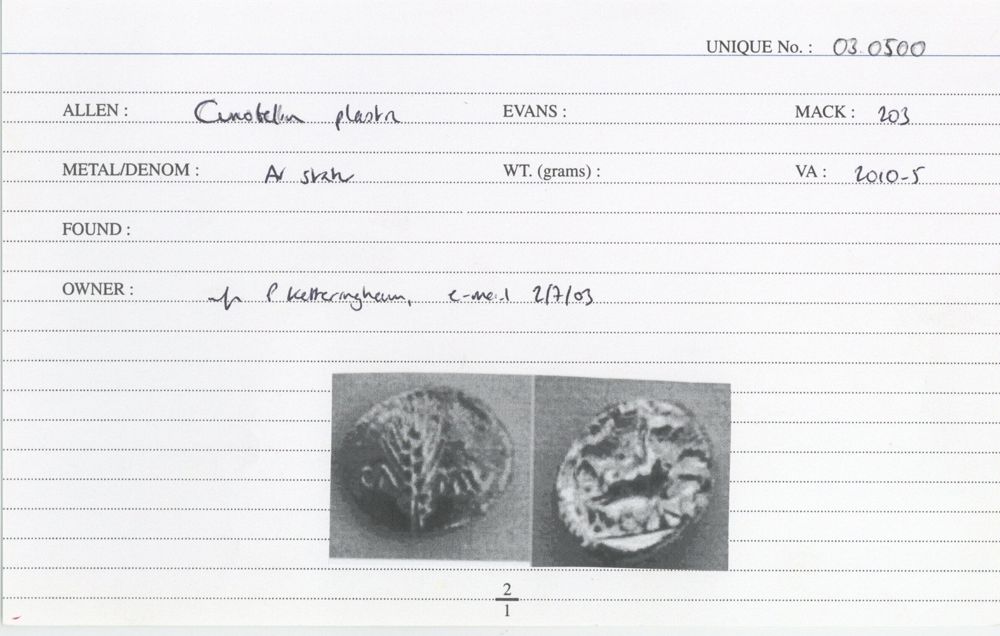 UNIQUE No. : 03.0500
ALLEN : Cunobelin plastic EVANS : MACK : 203
METAL/DENOM : AV stater WT. (grams) : VA : 2010-5
FOUND :
OWNER : P Ketteringham, e-mail 2/7/03
CAM
2
1